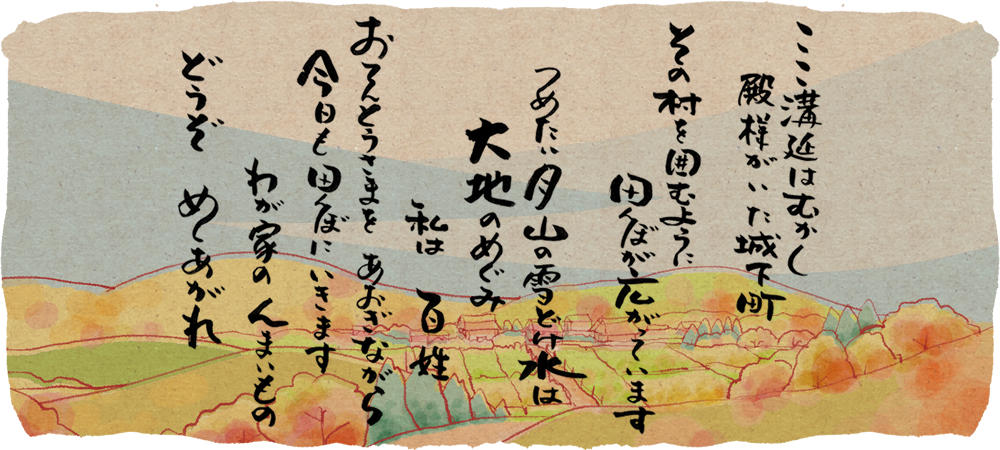 ここ溝延はむかし
殿様がいた城下町
その村を囲むように
田んぼが広がっています
つめたい月山の雪どけ水は
大地のめぐみ
私は 百姓
おてんとうさまを あおぎながら
今日も田んぼにいきます
わが家のんまいもの
どうぞ めしあがれ